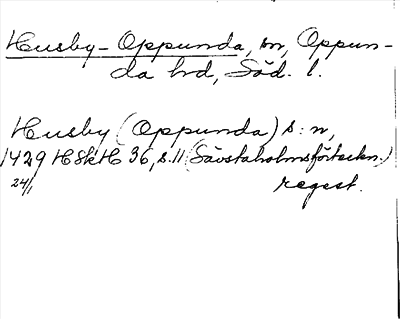 Husby-Oppunda, sn, Oppun-
da hrd, Söd. l.
Husby (Oppunda) s:n,
1429 HSkH 36, s. 11 (Sävstaholmsförteckn.)
24/1 regest.